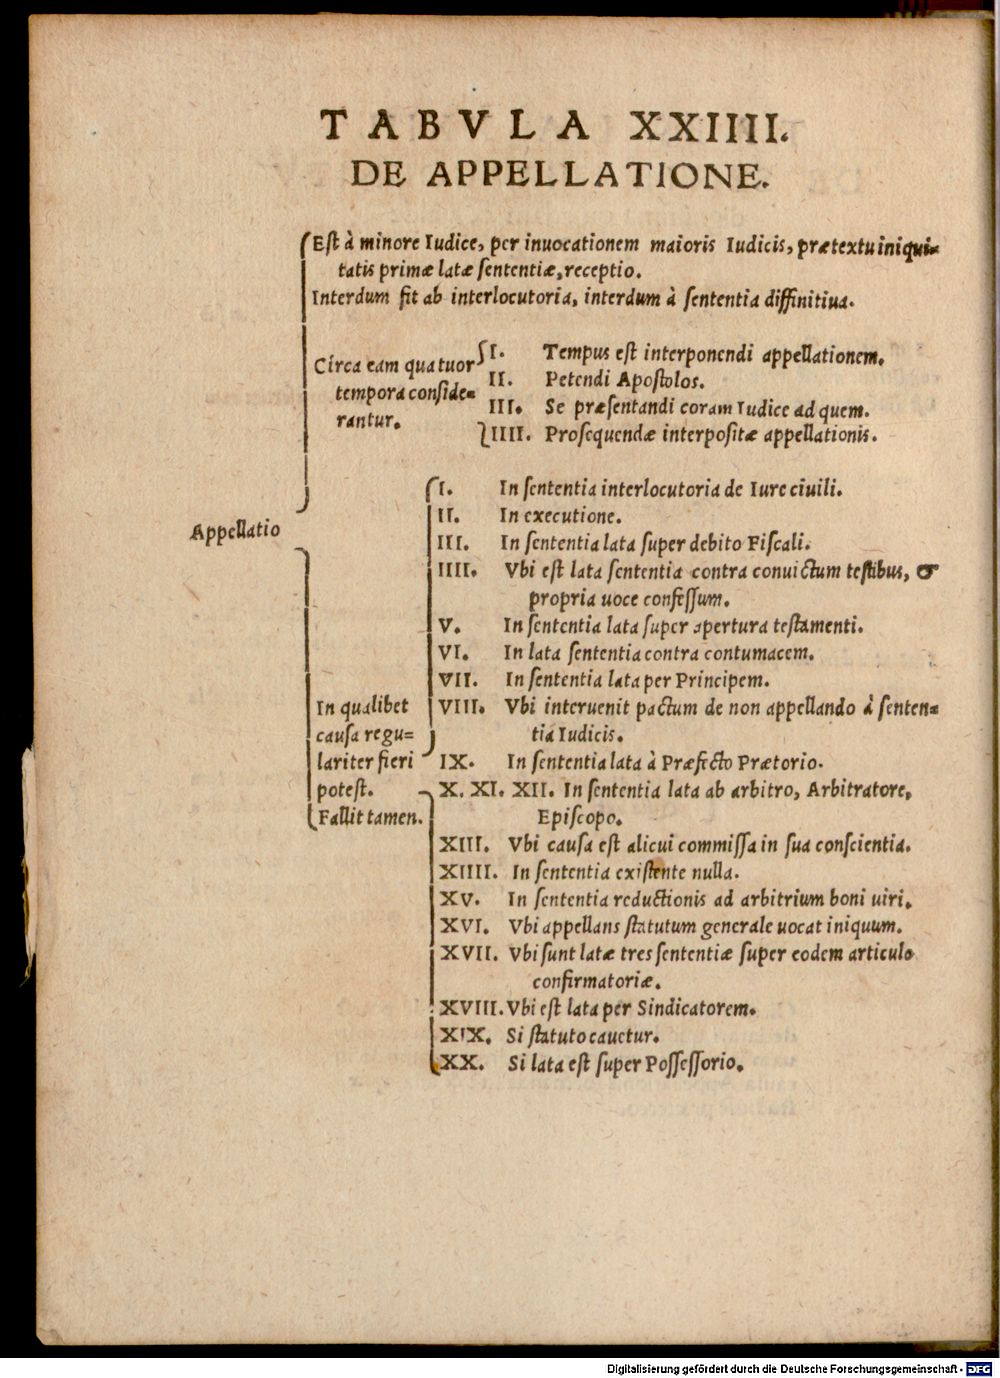 TABVLA XXIIII.
DE APPELLATIONE.
Est à minore Iudice, per inuocationem maioris Iudicis, prætextu iniqui-
tatis primæ latæ sententiæ, receptio.
Interdum fit ab interlocutoria, interdum à sententia diffinitiua.
Circa eam quatuor
tempora conside-
rantur.
I. Tempus est interponendi appellationem.
II. Petendi Apostolos.
III. Se præsentandi coram Iudice ad quem.
IIII. Prosequendæ interpositæ appellationis.
Appellatio
In qualibet
causa regu-
lariter fieri
potest.
Fallit tamen.
I. In sententia interlocutoria de Iure ciuili.
II. In executione.
III. In sententia lata super debito Fiscali.
IIII. Vbi est lata sententia contra conuictum testibus, &
propria uoce confessum.
V. In sententia lata super apertura testamenti.
VI. In lata sententia contra contumacem.
VII. In sententia lata per Principem.
VIII. Vbi interuenit pactum de non appellando à senten-
tia Iudicis.
IX. In sententia lata à Præfecto Prætorio.
X. XI. XII. In sententia lata ab arbitro, Arbitratore,
Episcopo.
XIII. Vbi causa est alicui commissa in sua conscientia.
XIIII. In sententia existente nulla.
XV. In sententia reductionis ad arbitrium boni uiri.
XVI. Vbi appellans statutum generale uocat iniquum.
XVII. Vbi sunt latæ tres sententiæ super eodem articulo
confirmatoriæ.
XVIII. Vbi est lata per Sindicatorem.
XIX. Si statuto cauetur.
XX. Si lata est super Possessorio.
Digitalisierung gefördert durch die Deutsche Forschungsgemeinschaft - DFG